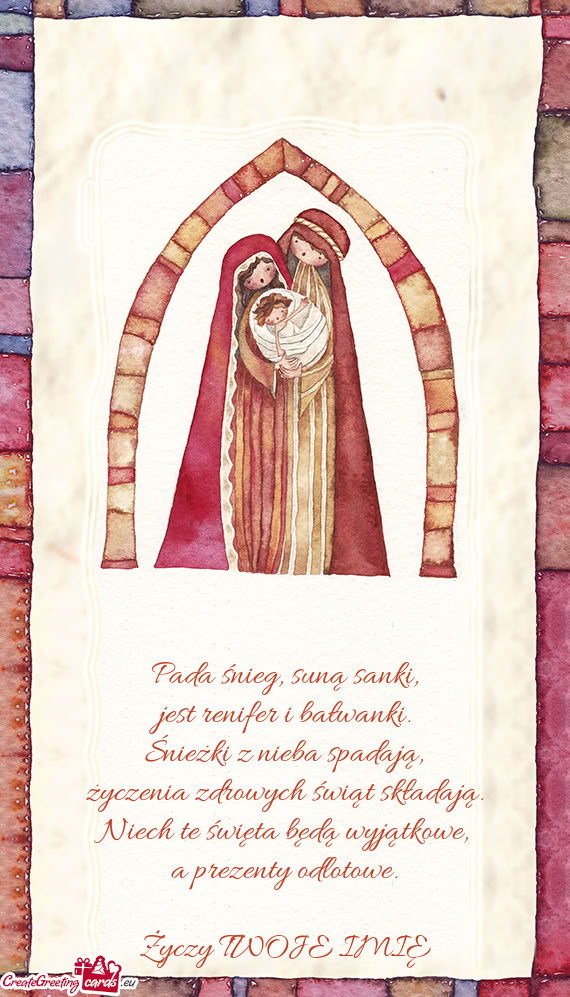 Pada śnieg, suną sanki,
jest renifer i bałwanki.
Śnieżki z nieba spadają,
życzenia zdrowych świąt składają.
Niech te święta będą wyjątkowe,
a prezenty odlotowe.
Życzy TWOJE IMIĘ
CreateGreeting cards .eu